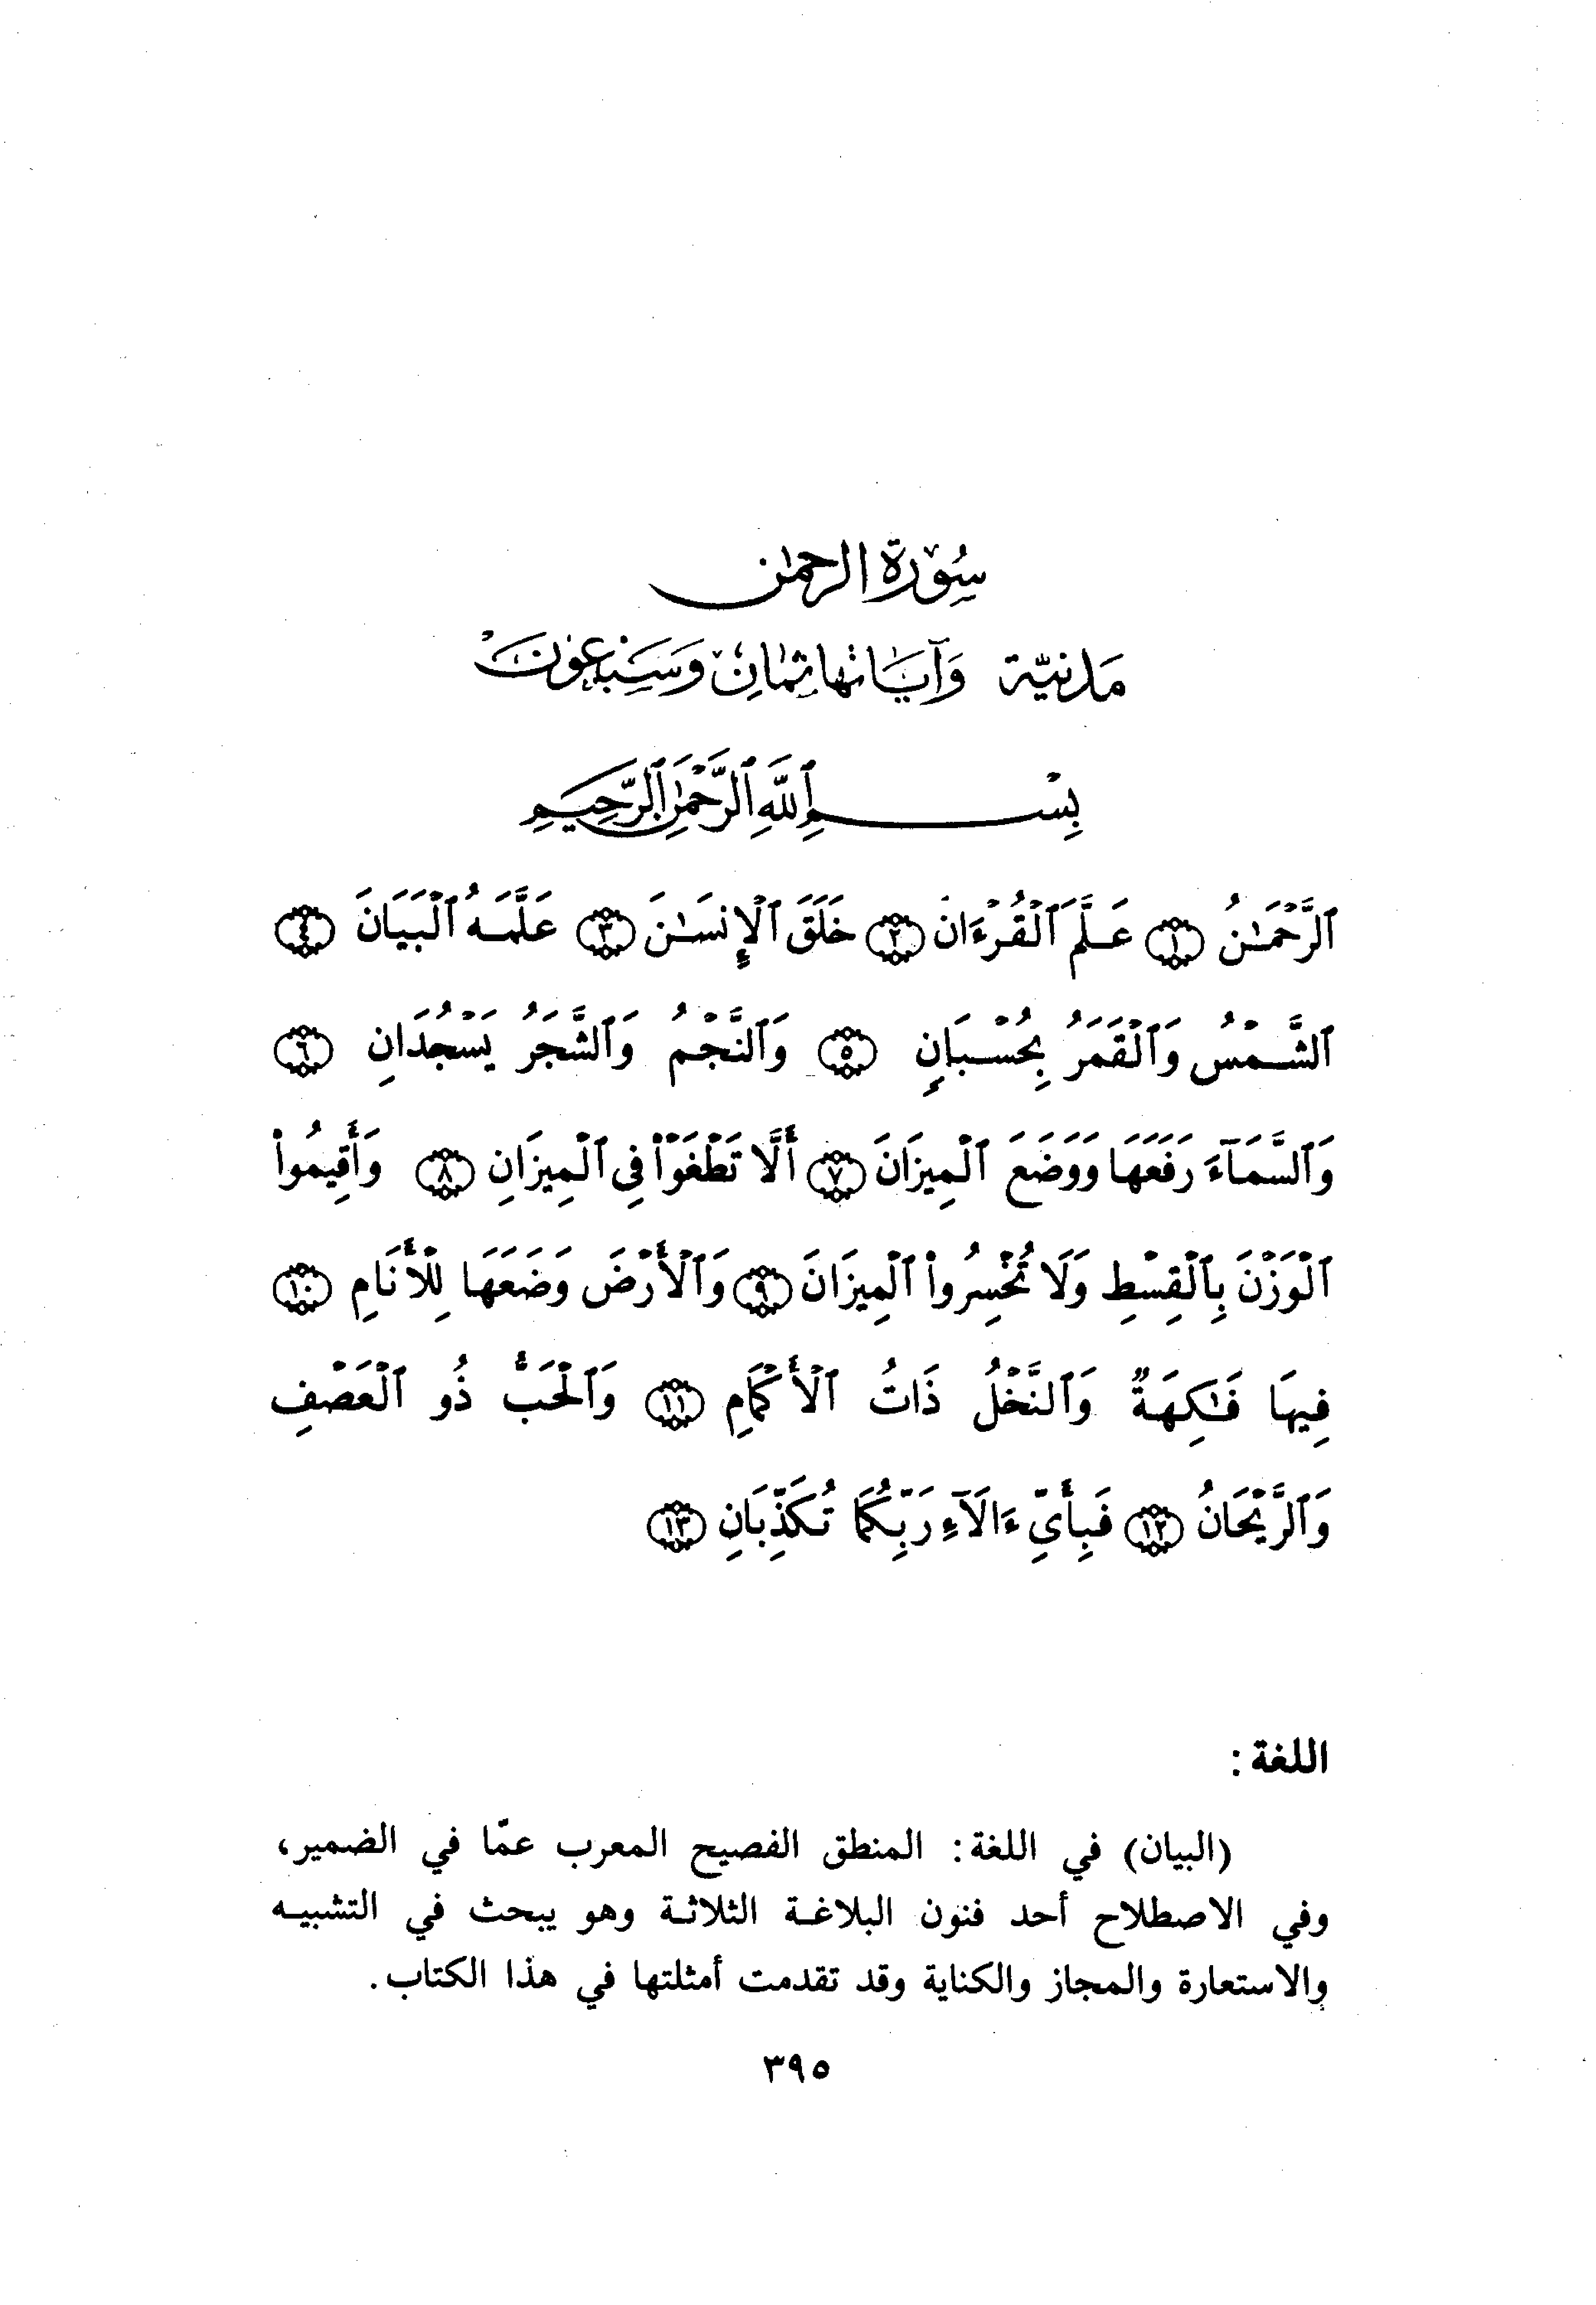 سُوْرَة الرحمٰن
مَدنيّة وَآيَاتها ثمَانٍ وَسَبْعُونْ
بِسْمِ ٱللَّهِ ٱلرَّحْمَٰنِ ٱلرَّحِيمِ
ٱلرَّحْمَـٰنُ ﴿١﴾ عَلَّمَ ٱلْقُرْءَانَ ﴿٢﴾ خَلَقَ ٱلْإِنسَـٰنَ ﴿٣﴾ عَلَّمَهُ ٱلْبَيَانَ ﴿٤﴾
ٱلشَّمْسُ وَٱلْقَمَرُ بِحُسْبَانٍ ﴿٥﴾ وَٱلنَّجْمُ وَٱلشَّجَرُ يَسْجُدَانِ ﴿٦﴾
وَٱلسَّمَآءَ رَفَعَهَا وَوَضَعَ ٱلْمِيزَانَ ﴿٧﴾ أَلَّا تَطْغَوْا۟ فِى ٱلْمِيزَانِ ﴿٨﴾ وَأَقِيمُوا۟
ٱلْوَزْنَ بِٱلْقِسْطِ وَلَا تُخْسِرُوا۟ ٱلْمِيزَانَ ﴿٩﴾ وَٱلْأَرْضَ وَضَعَهَا لِلْأَنَامِ ﴿١٠﴾
فِيهَا فَـٰكِهَةٌ وَٱلنَّخْلُ ذَاتُ ٱلْأَكْمَامِ ﴿١١﴾ وَٱلْحَبُّ ذُو ٱلْعَصْفِ
وَٱلرَّيْحَانُ ﴿١٢﴾ فَبِأَىِّ ءَالَآءِ رَبِّكُمَا تُكَذِّبَانِ ﴿١٣﴾
اللغة :
(البيان) في اللغة: المنطق الفصيح المعرب عمّا في الضمير،
وفي الاصطلاح أحد فنون البلاغة الثلاثة وهو يبحث في التشبيه
والاستعارة والمجاز والكناية وقد تقدمت أمثلتها في هذا الكتاب.
٣٩٥